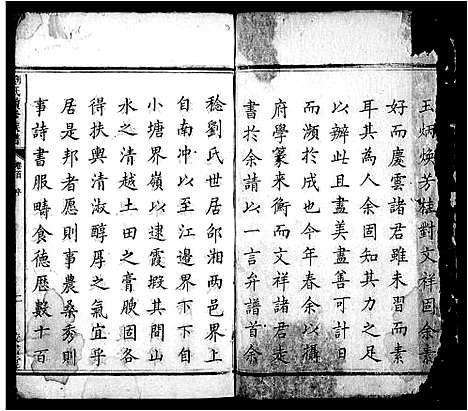 王炳煥芳桂對文祥固余素
好而慶雲諸君雖未習而素
耳其為人余固知其力之足
以辦此且盡美盡善可計日
而瀕於成也今年春余以攝
府學篆來衡而文祥諸君走
書於余請以一言弁譜首余
稔劉氏世居邵湘兩邑界上
自南冲以至江邊界下下自
小塘界嶺以逮霞塅其間山
水之清越土田之膏腴固各
得扶輿清淑醇厚之氣宜乎
居是邦者愿則事農桑秀則
事詩書服疇食德歷數十百